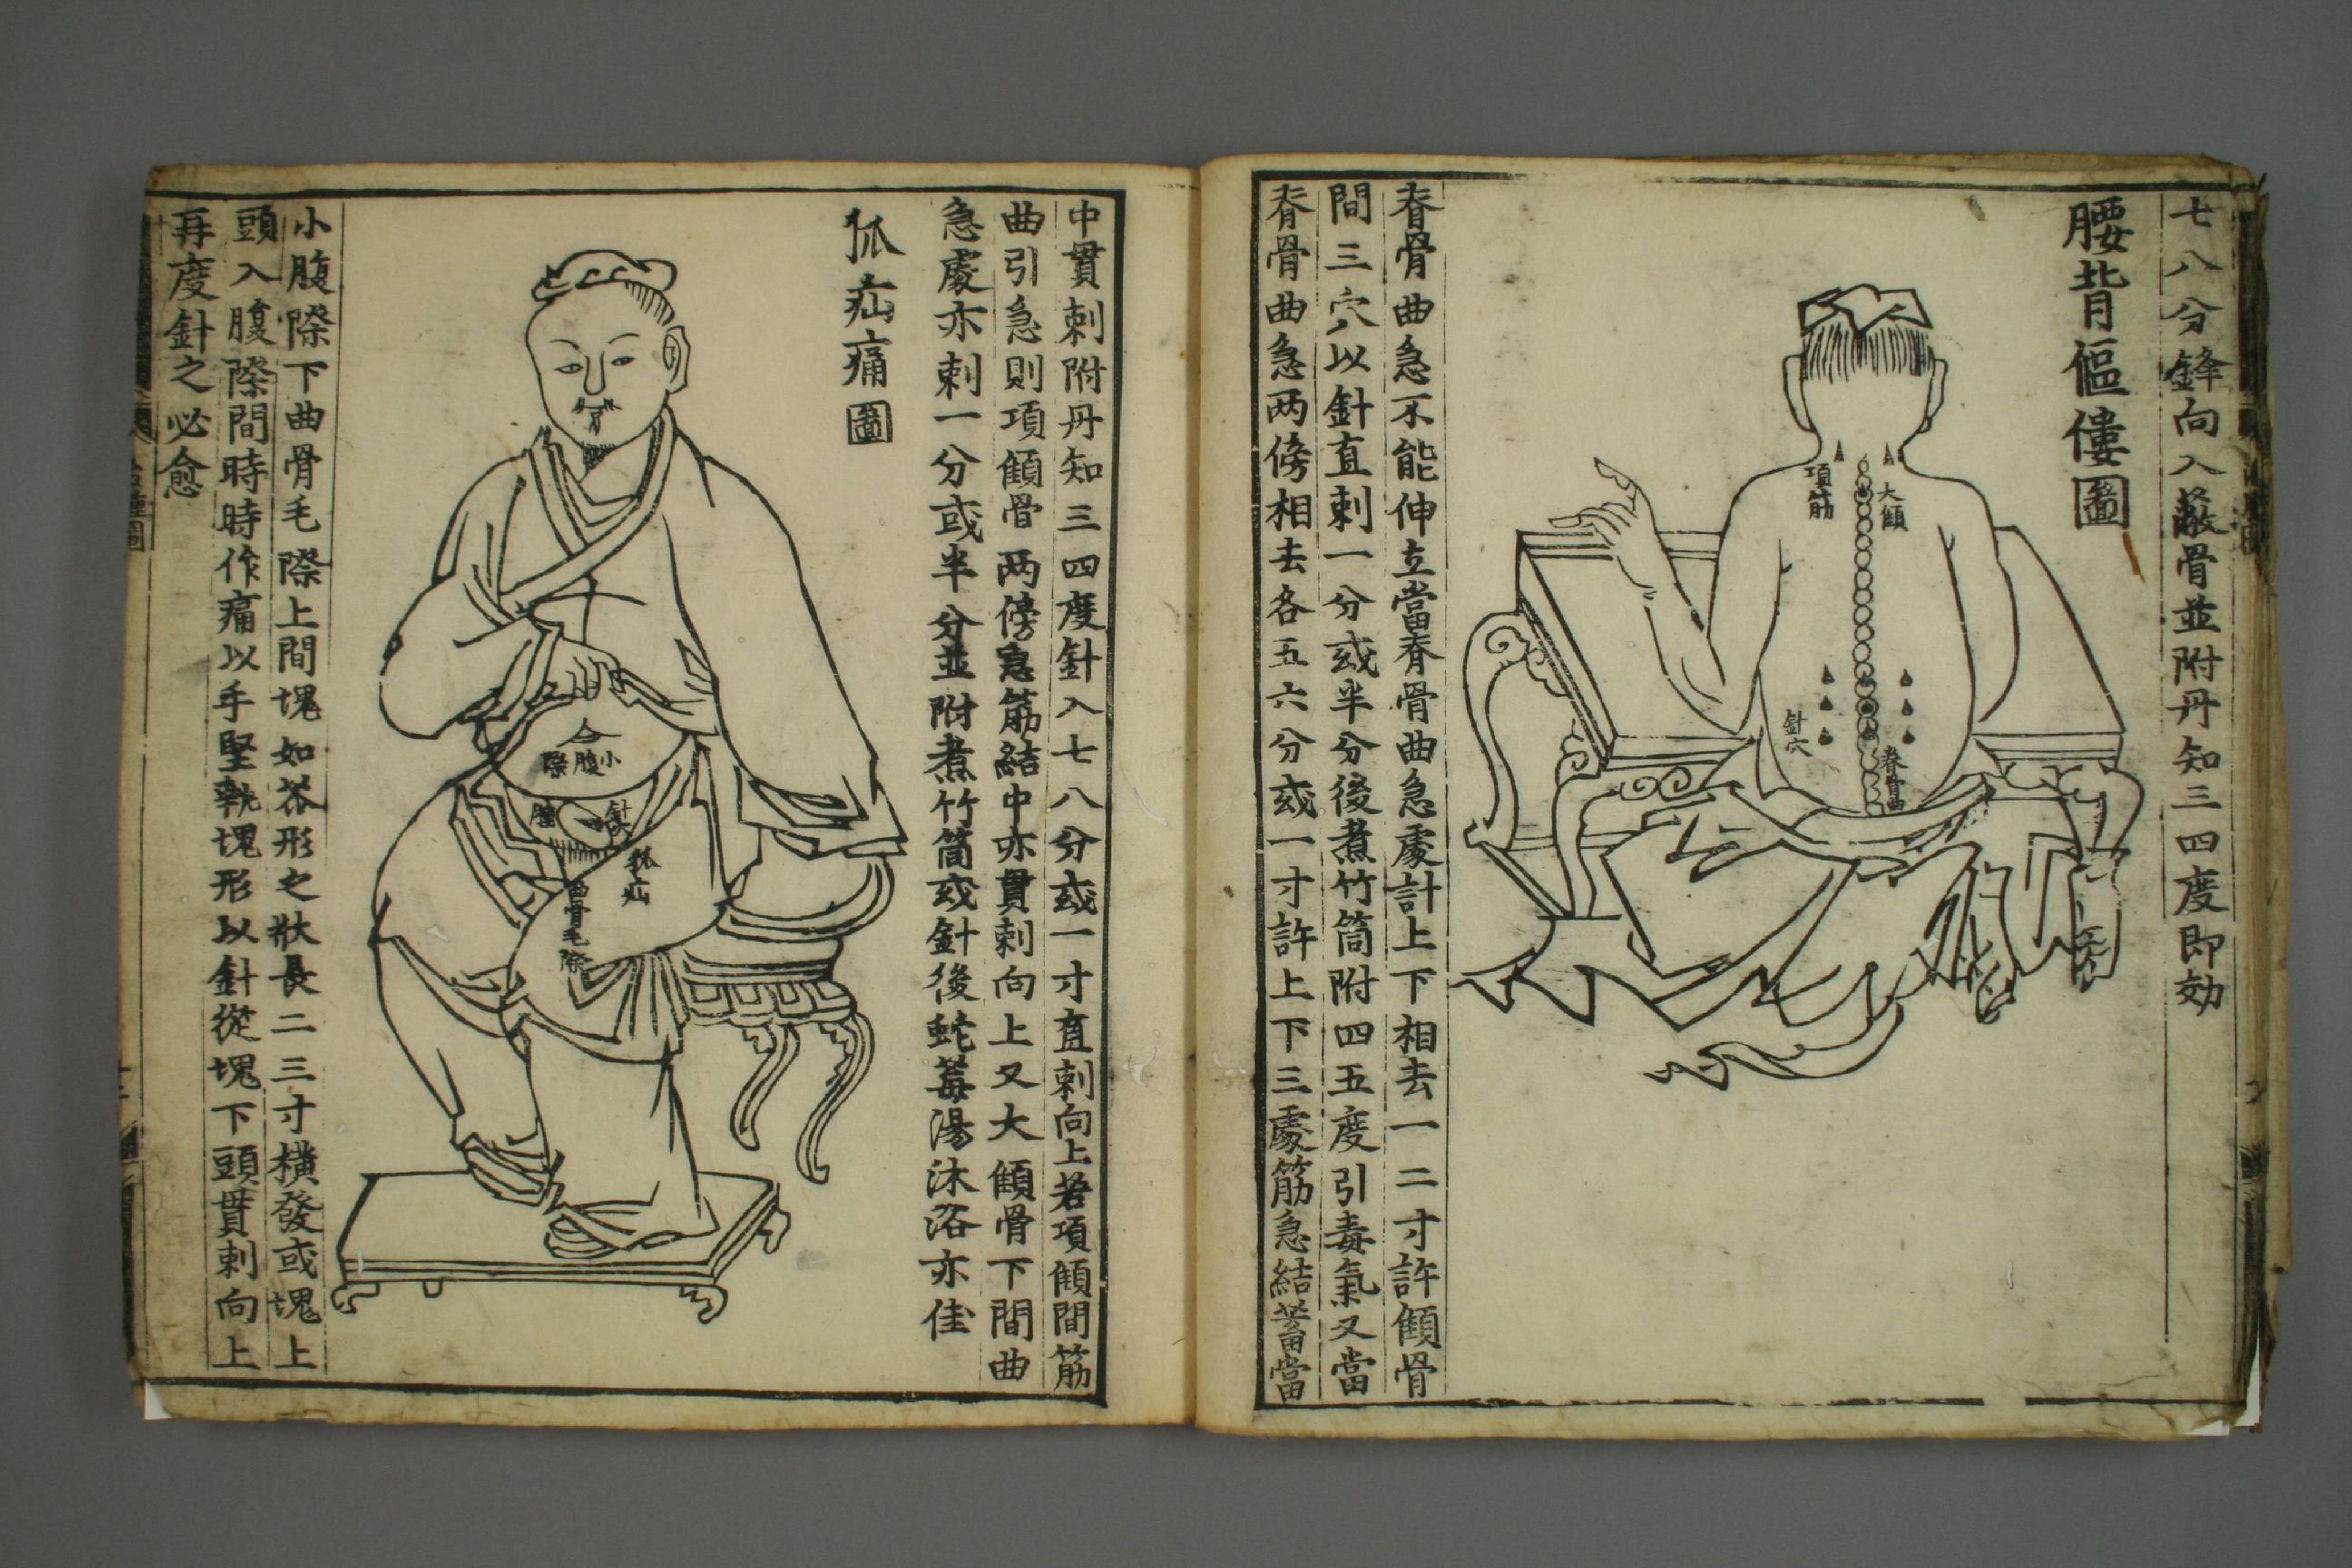 七八分鋒向入蔽骨並附丹知三四度即効
腰背傴僂圖
項筋
大顀
針穴
脊骨曲
脊骨曲急不能伸立當脊骨曲急處計上下相去一二寸許顀骨
間三穴以針直刺一分或半分後煮竹筒附四五度引毒氣又當
脊骨曲急两傍相去各五六分或一寸許上下三處筋急結蓄當
中貫刺附丹知三四度針入七八分或一寸直刺向上若項顀間筋
曲引急則項顀骨两傍急筋結中亦貫刺向上又大顀骨下間曲
急處亦刺一分或半分並附煮竹筒或針後蛇莓湯沐浴亦佳
狐疝痛圖
小腹際
針穴
狐疝
曲骨毛際
小腹際下曲骨毛際上間塊如茶形之狀長二三寸橫發或塊上
頭入腹際間時時作痛以手堅執塊形以針從塊下頭貫刺向上
再度針之必愈